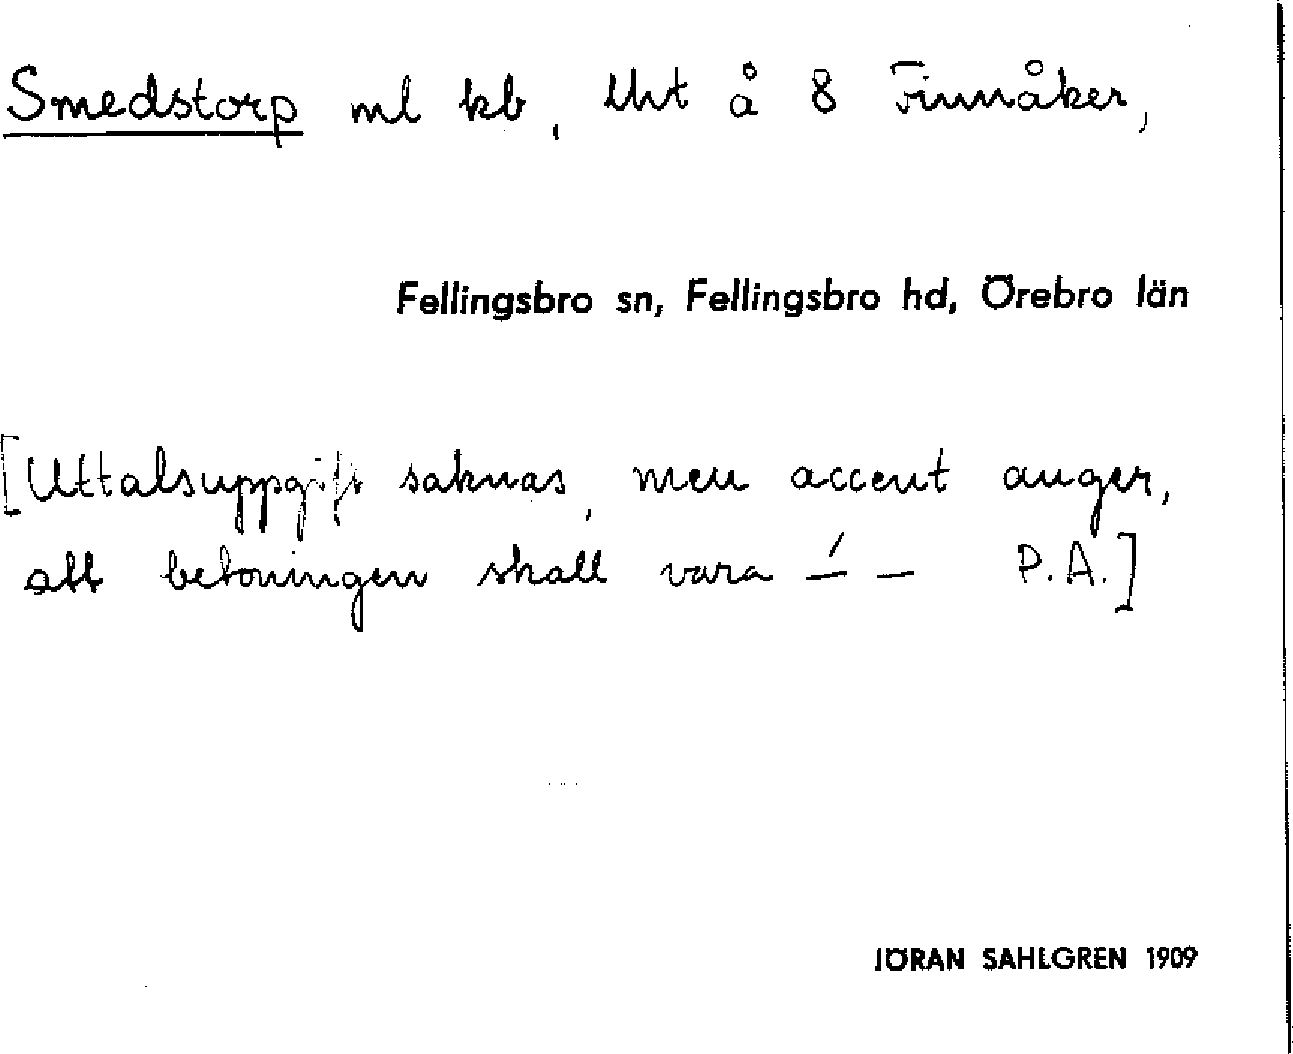 Smedstorp ml kb, tht å 8 Finnåker,
Fellingsbro sn, Fellingsbro hd, Örebro län
[Uttalsuppgift saknas, men accent anger,
att betoningen skall vara –́ – P.A.]
JÖRAN SAHLGREN 1909